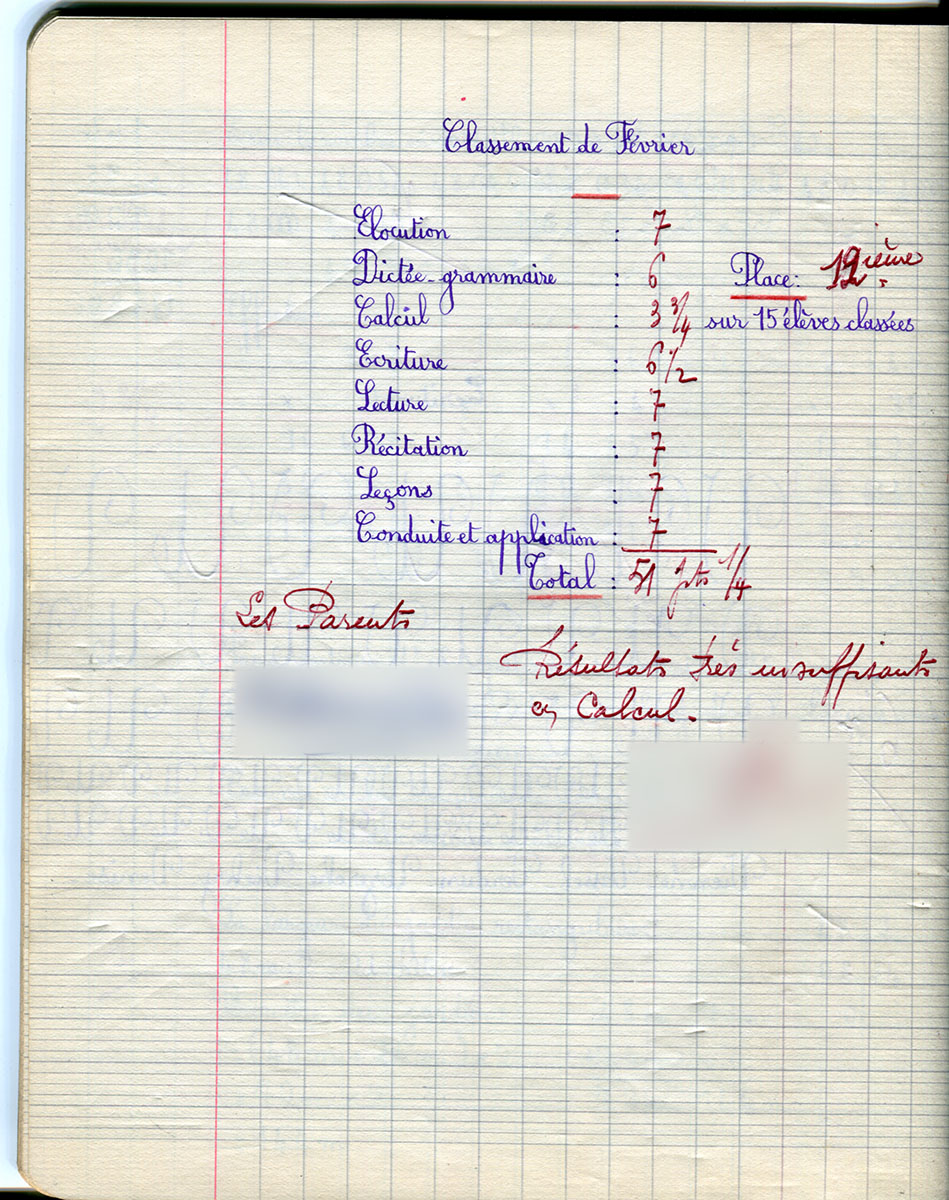 Classement de Février
Elocution : 7
Dictée-grammaire : 6 Place: 12ième
Calcul : 3 3/4 sur 15 élèves classées
Ecriture : 6 1/2
Lecture : 7
Récitation : 7
Leçons : 7
Conduite et application : 7
Total : 51 pts 1/4
Les Parents
Résultats très insuffisants
en Calcul.